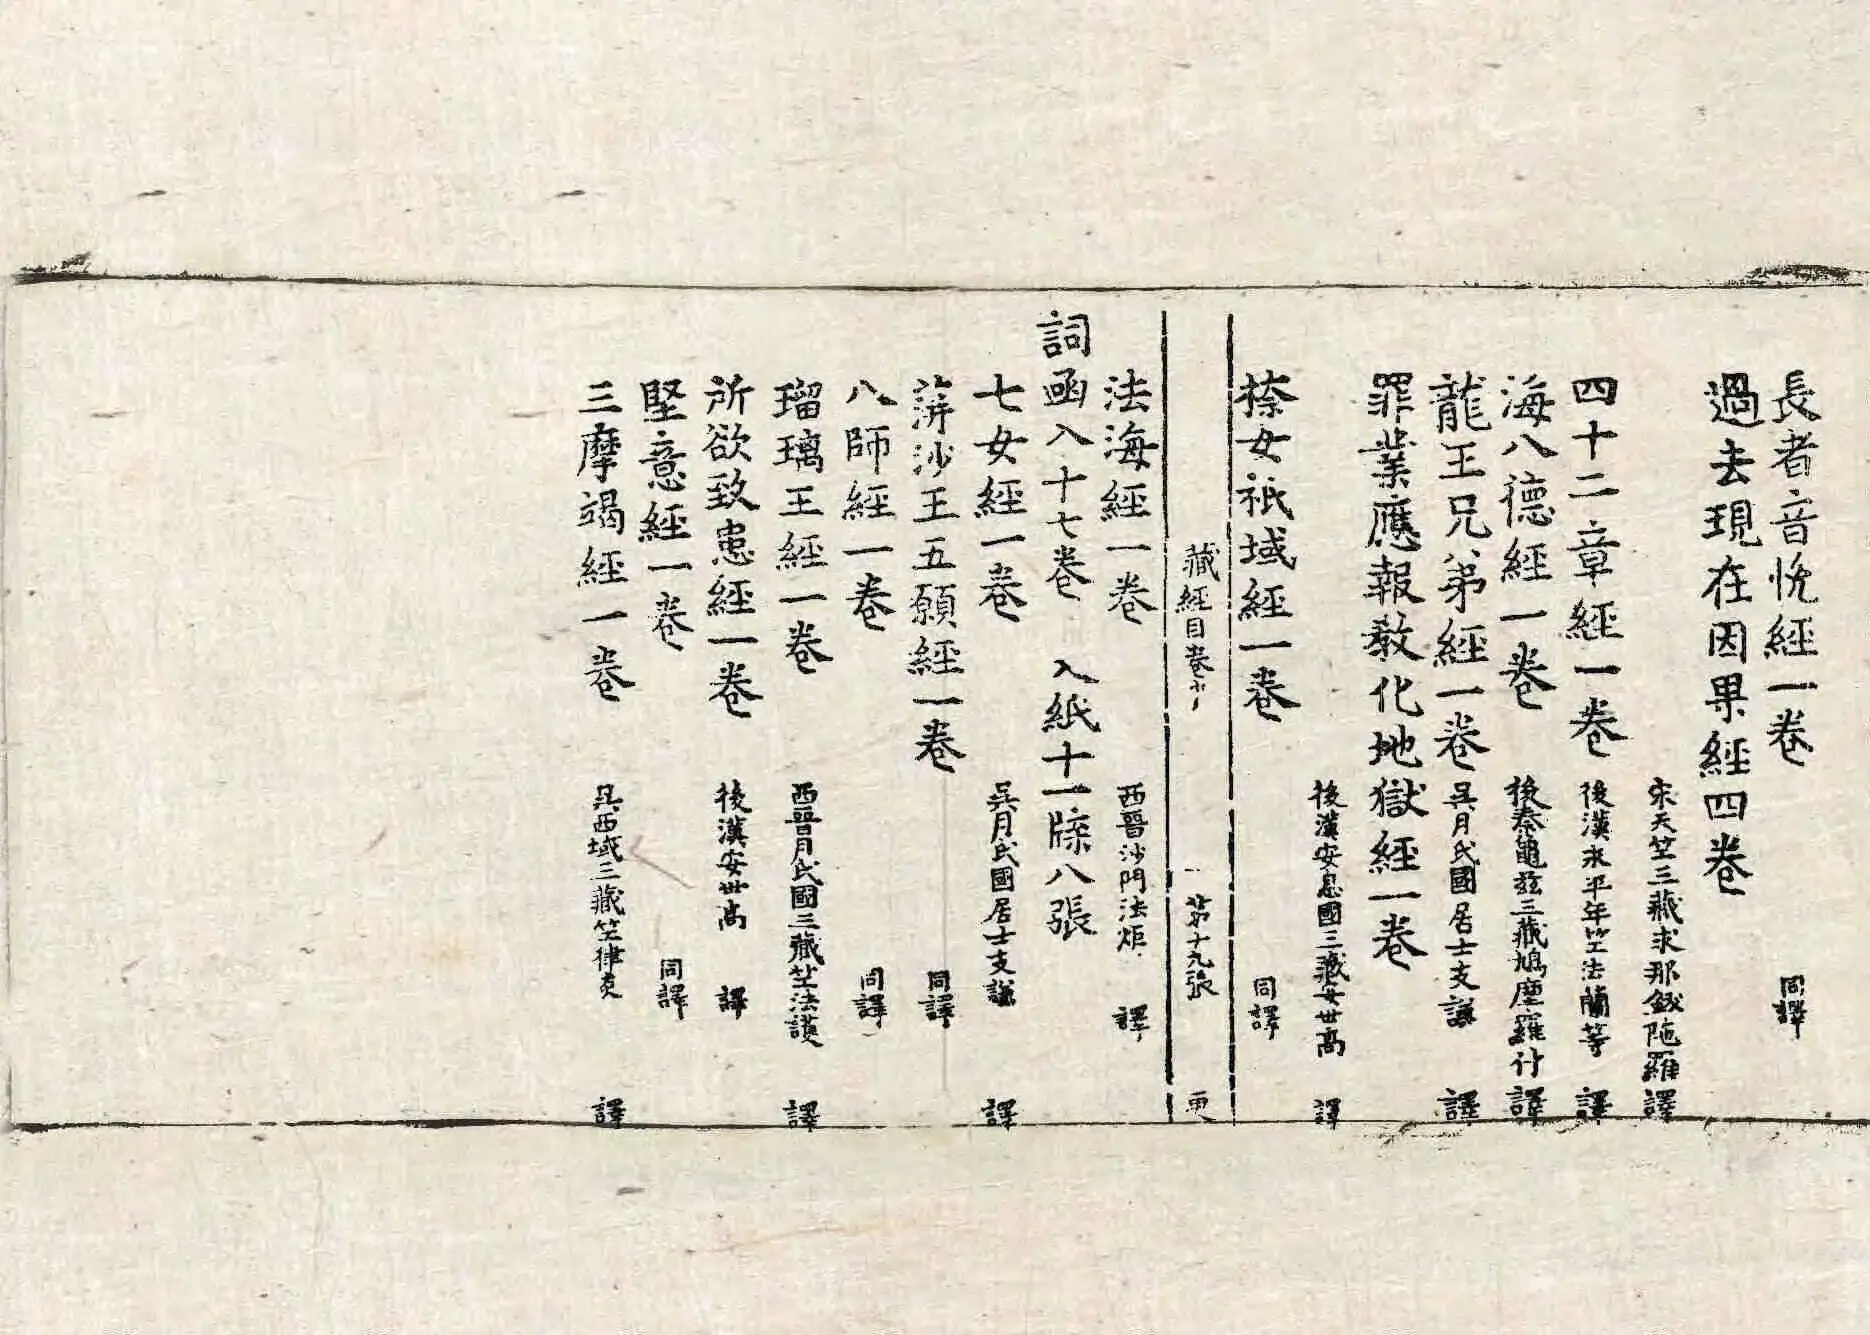 長者音悅經一卷 同譯
過去現在因果經四卷
宋天竺三藏求那鈸陁羅譯
四十二章經一卷 後漢永平年竺法蘭等 譯
海八德經一卷 後秦龜玆三藏鳩摩羅什譯
龍王兄弟經一卷 吳月氏國居士支謙 譯
罪業應報敎化地獄經一卷
後漢安息國三藏安世高 譯
㮈女祇域經一卷 同譯
藏經目卷 第十九張 更
法海經一卷 西晉沙門法炬 譯
詞函入十七卷 入紙十一牒八張
七女經一卷 吳月氏國居士支謙 譯
蓱沙王五願經一卷 同譯
八師經一卷 同譯
瑠璃王經一卷 西晉月氏國三藏竺法護 譯
所欲致患經一卷 後漢安世高 譯
堅意經一卷 同譯
三摩竭經一卷 吳西域三藏竺律炎 譯